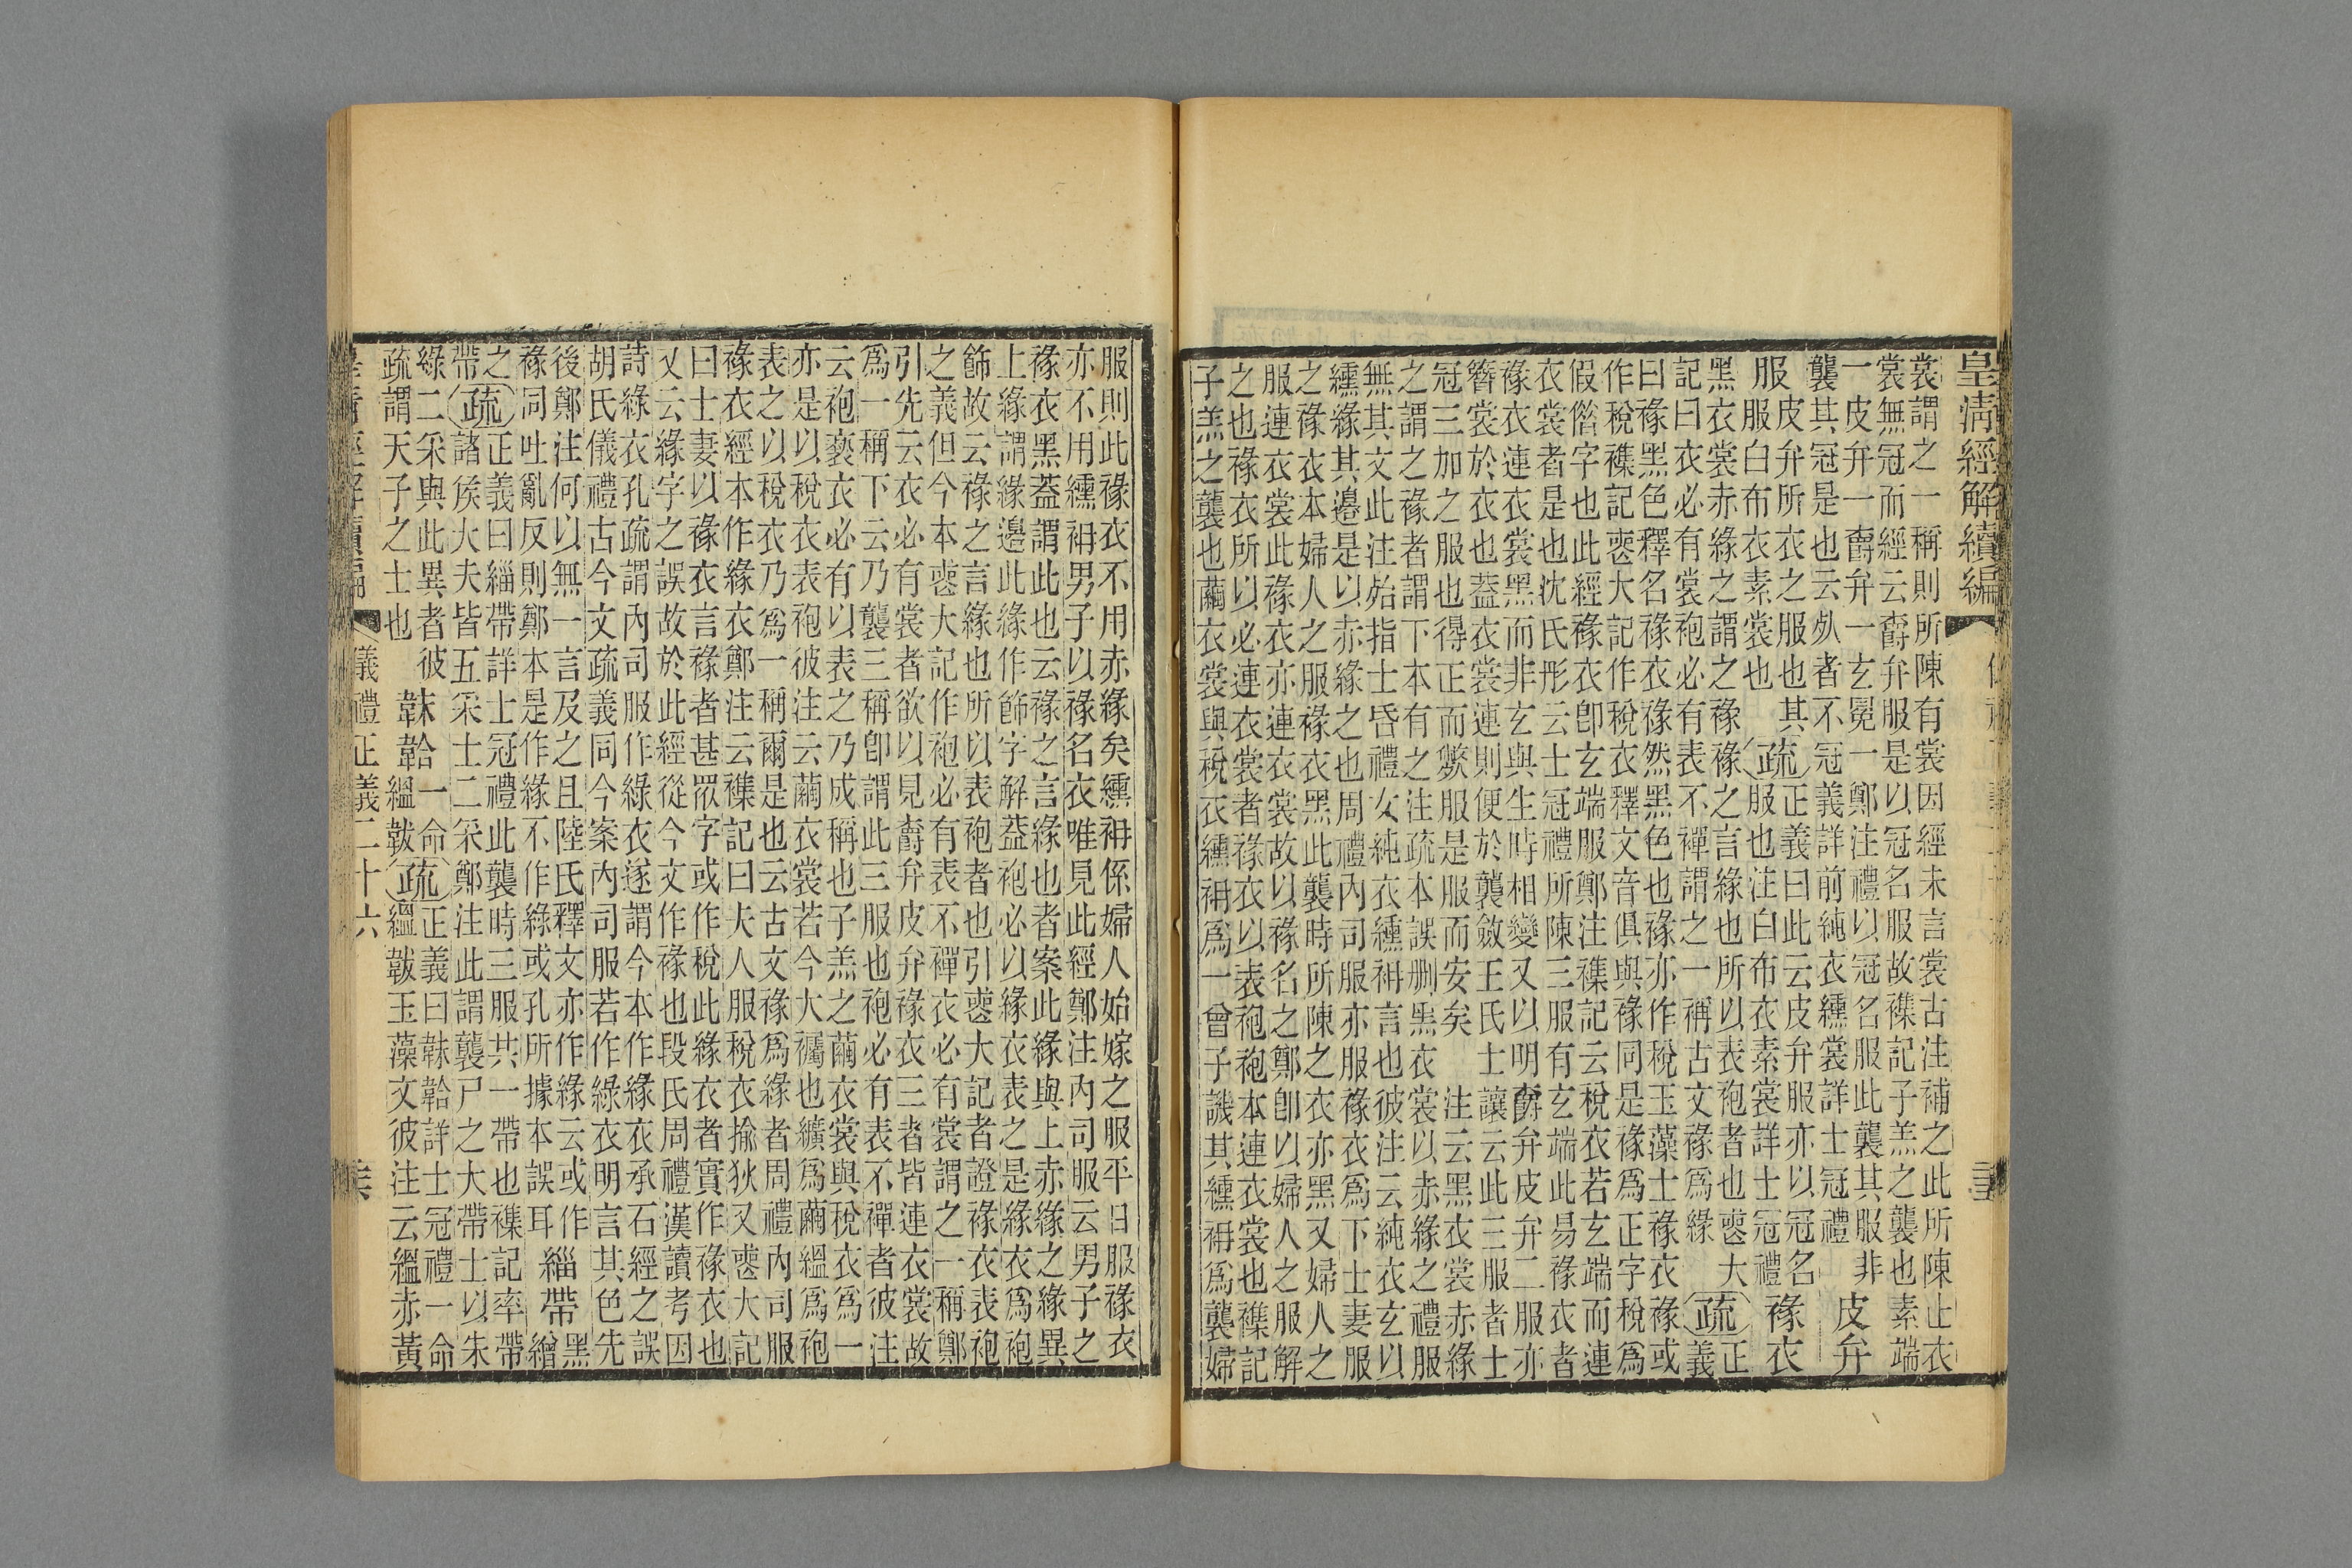 皇清經解續編
裳謂之一稱則所陳有裳因經未言裳古注補之此所陳止衣
裳無冠而經云爵弁服是以冠名服故襍記子羔之襲也素端
一皮弁一爵弁一玄冕一鄭注禮以冠名服此襲其服非
襲其冠是也云㱃者不冠義詳前純衣纁裳詳士冠禮
皮弁
服
皮弁所衣之服也其
服白布衣素裳也
疏
正義曰此云皮弁服亦以冠名
服也注白布衣素裳詳士冠禮
褖衣
黑衣裳赤緣之謂之褖褖之言緣也所以表袍者也喪大
記曰衣必有裳袍必有表不襌謂之一稱古文褖爲緣
疏
正
義
曰褖黑色釋名褖衣褖然黑色也褖亦作稅玉藻士褖衣褖或
作稅襍記喪大記作稅衣釋文音俱與褖同是褖爲正字稅爲
假偺字也此經褖衣卽玄端服鄭注襍記云稅衣若玄端而連
衣裳者是也沈氏彤云士冠禮所陳三服有玄端此易褖衣者
褖衣連衣裳黑而非玄與生時相變又以明爵弁皮弁二服亦
簪裳於衣也葢衣裳連則便於襲斂王氏士讓云此三服者士
冠三加之服也得正而斃服是服而安矣 注云黑衣裳赤緣
之謂之褖者謂下本有之注疏本誤刪黑衣裳以赤緣之禮服
無其文此注殆指士昏禮女純衣纁袡言也彼注云純衣玄以
纁緣其邉是以赤緣之也周禮內司服亦服褖衣爲下士妻服
之褖衣本婦人之服褖衣黑此襲時所陳之衣亦黑又婦人之
服連衣裳此褖衣亦連衣裳故以褖名之鄭卽以婦人之服解
之也褖衣所以必連衣裳者褖衣以表袍袍本連衣裳也襍記
子羔之襲也繭衣裳與稅衣纁袡爲一曾子譏其纁袡爲襲婦
服則此褖衣不用赤緣矣纁袡係婦人始嫁之服平日服褖衣
亦不用纁袡男子以褖名衣唯見此經鄭注內司服云男子之
褖衣黑葢謂此也云褖之言緣也者案此緣與上赤緣之緣異
上緣謂緣邉此緣作飾字解葢袍必以緣衣表之是緣衣爲袍
飾故云褖之言緣也所以表袍者也引喪大記者證褖衣表袍
之義但今本喪大記作袍必有表不襌衣必有裳謂之一稱鄭
引先云衣必有裳者欲以見爵弁皮弁褖衣三者皆連衣裳故
爲一稱下云乃襲三稱卽謂此三服也袍必有表不襌者彼注
云袍褻衣必有以表之乃成稱也子羔之繭衣裳與稅衣爲一
亦是以稅衣表袍彼注云繭衣裳若今大襡也纊爲繭縕爲袍
表之以稅衣乃爲一稱爾是也云古文褖爲緣者周禮內司服
褖衣經本作緣衣鄭注云襍記曰夫人服稅衣揄狄又喪大記
曰士妻以褖衣言褖者甚眾字或作稅此緣衣者實作褖衣也
又云緣字之誤故於此經從今文作褖也段氏周禮漢讀考因
詩綠衣孔疏謂內司服作綠衣遂謂今本作緣衣承石經之誤
胡氏儀禮古今文疏義同今案內司服若作綠衣明言其色先
後鄭注何以無一言及之且陸氏釋文亦作緣云或作
褖同吐亂反則鄭本是作緣不作綠或孔所據本誤耳
緇帶
黑
繒
之
帶
疏
正義曰緇帶詳士冠禮此襲時三服共一帶也襍記率帶
諸侯大夫皆五采士二采鄭注此謂襲尸之大帶士以朱
綠二采與此異者彼
疏謂天子之士也
韎韐
一命
縕韍
疏
正義曰韎韐詳士冠禮一命
縕韍玉藻文彼注云縕赤黃
儀禮正義二十六